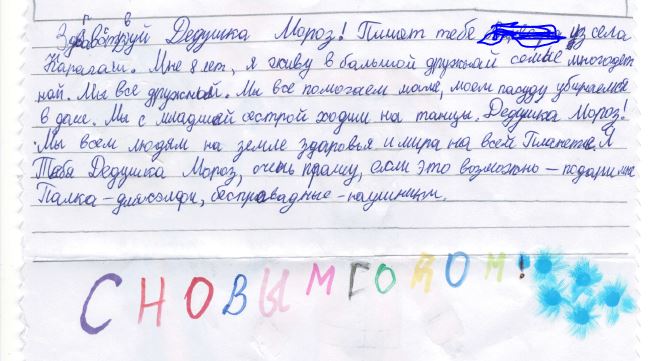 Здравствуй Дедушка Мороз! Пишет тебе из села
Карагаш. Мне 8 лет, я живу в большой дружнай семье многодет
ной. Мы все дружной. Мы все помогаем маме, моем пасуду убираемся
в доме. Мы с младшей сестрой ходим на танцы. Дедушка Мороз!
Мы всем людям на земле здоровья и мира на всей Планете. Я
Тебя Дедушка Мороз, очень прашу, если это возможно - подари мне
Палка - для сэлфи, бесправадные - наушники.
С НОВЫМ ГОДОМ!